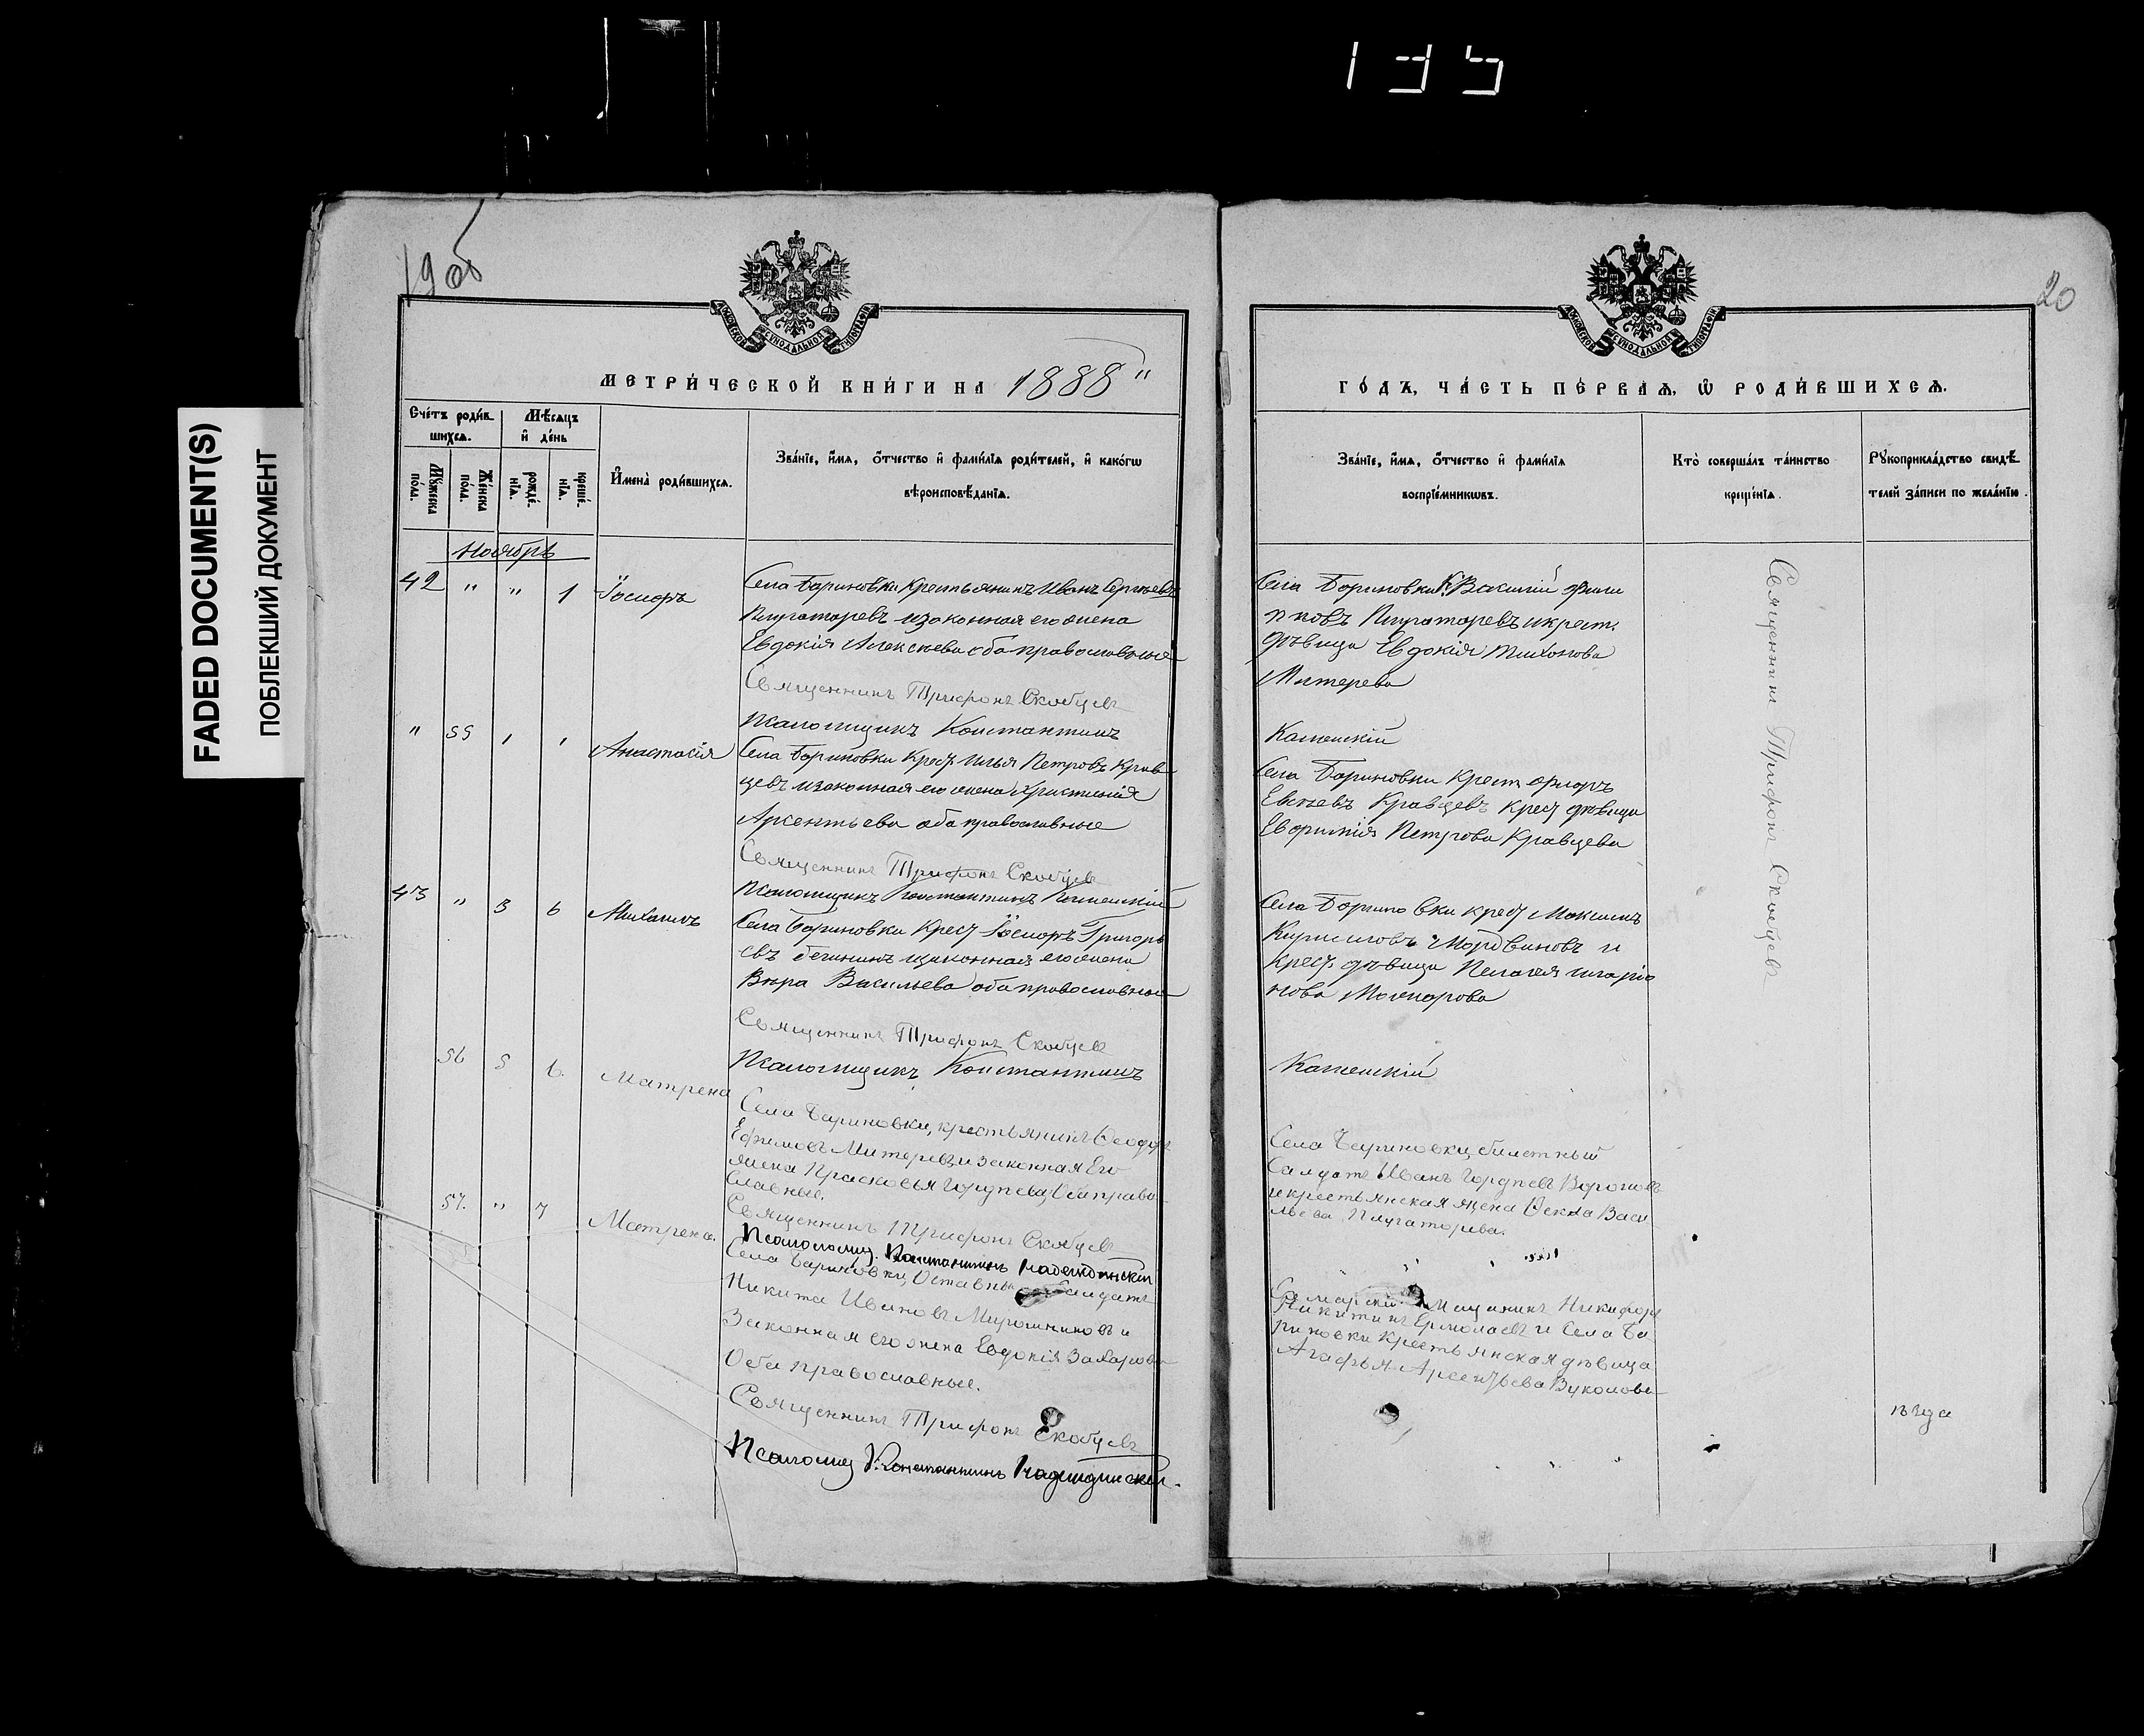 135
FADED DOCUMENT(S)
ПОБЛЕКШИЙ ДОКУМЕНТ
19об
20
МОСКОВСКОЙ СѴНОДАЛЬНОЙ ТИПОГРАФІИ
МОСКОВСКОЙ СѴНОДАЛЬНОЙ ТИПОГРАФІИ
МЕТРИ́ЧЕСКОЙ КНИ́ГИ НА 1888"
ГО́ДЪ, ЧА́СТЬ ПЕ́РВАѦ, Ѡ РОДИ́ВШИХСѦ.
Сче́тъ роди́в
шихсѧ.
Мѣ́сѧцъ
и де́нь
Мꙋ́жеска
по́ла.
Же́нска
по́ла.
рожде́-
нїѧ.
креще́-
нїѧ.
И҆мена̀ роди́вшихсѧ.
Зва́нїе, и҆́мѧ, ѻ҆́тчество и҆ фами́лїѧ роди́телей, и҆ како́гѡ
вѣроисповѣ́данїѧ.
Зва́нїе, и҆́мѧ, ѻ҆́тчество и҆ фами́лїѧ
воспрїе́мникѡвъ.
Кто̀ соверша́лъ та́инство
креще́нїѧ.
Рꙋкоприкла́дство свидѣ́-
телей за́писи по жела́нїю.
Ноябрь
42 " " 1
Села Бариновки Крестьянинъ Иванъ Сергеевъ
Плугаторевъ и законная его жена
Евдокія Алексеева оба православные
Священникъ Трифонъ Скобцевъ
Псаломщикъ Константинъ
Села Бариновки К. Василій
Плугаторевъ и крест.
дѣвица Евдокія Тихонова
Митерева
Каменскій
Священник Трифонъ Скобцевъ
" 55 1 1 Анастасія
Села Бариновки Крест. Илья Петровъ Крав
цевъ и законная его жена
Арсентьева оба православные
Священникъ Трифонъ Скобцевъ
Псаломщикъ Константинъ Каменскій
Села Бариновки Крест.
Евсѣевъ Кравцевъ Крест дѣвица
Евфимія Петрова Кравцева
43 " 3 6 Михаилъ
Села Бариновки Крест. Григорь
евъ и законная его жена
Васильева оба православные
Священникъ Трифонъ Скобцевъ
Псаломщикъ Константинъ
Села Бариновки крест Максимъ
Кириловъ Мордвиновъ и
Крест. дѣвица Пелагея Иларіо
нова
Каменскій
56 5 6 Матрена
Села Бариновки, крестьянинъ Ѳеодоръ
Ефимовъ Митеревъ и законная Его
жена Прасковья Гордѣева, Оба право
славные.
Священникъ Трифонъ Скобцевъ
Псаломщ. Константинъ Надеждинскій
Села Бариновки, билетный
Салдатъ Иванъ Гордѣевъ
и крестьянская жена Ѳекла Васи
льева Плугаторева.
57. " 7 Матрена.
Села Бариновки, Отставный Салдатъ
Никита Ивановъ Мирошниковъ и
Законная его жена Евдокія Захарова
Оба православные.
Священникъ Трифонъ Скобцевъ
Псаломщ Константинъ Надеждинскій.
Самарскій Мѣщанинъ Никифоръ
Никитинъ Ермолаевъ и Села Ба
риновки Крестьянская дѣвица
Агафья Арсентьева Вуколова